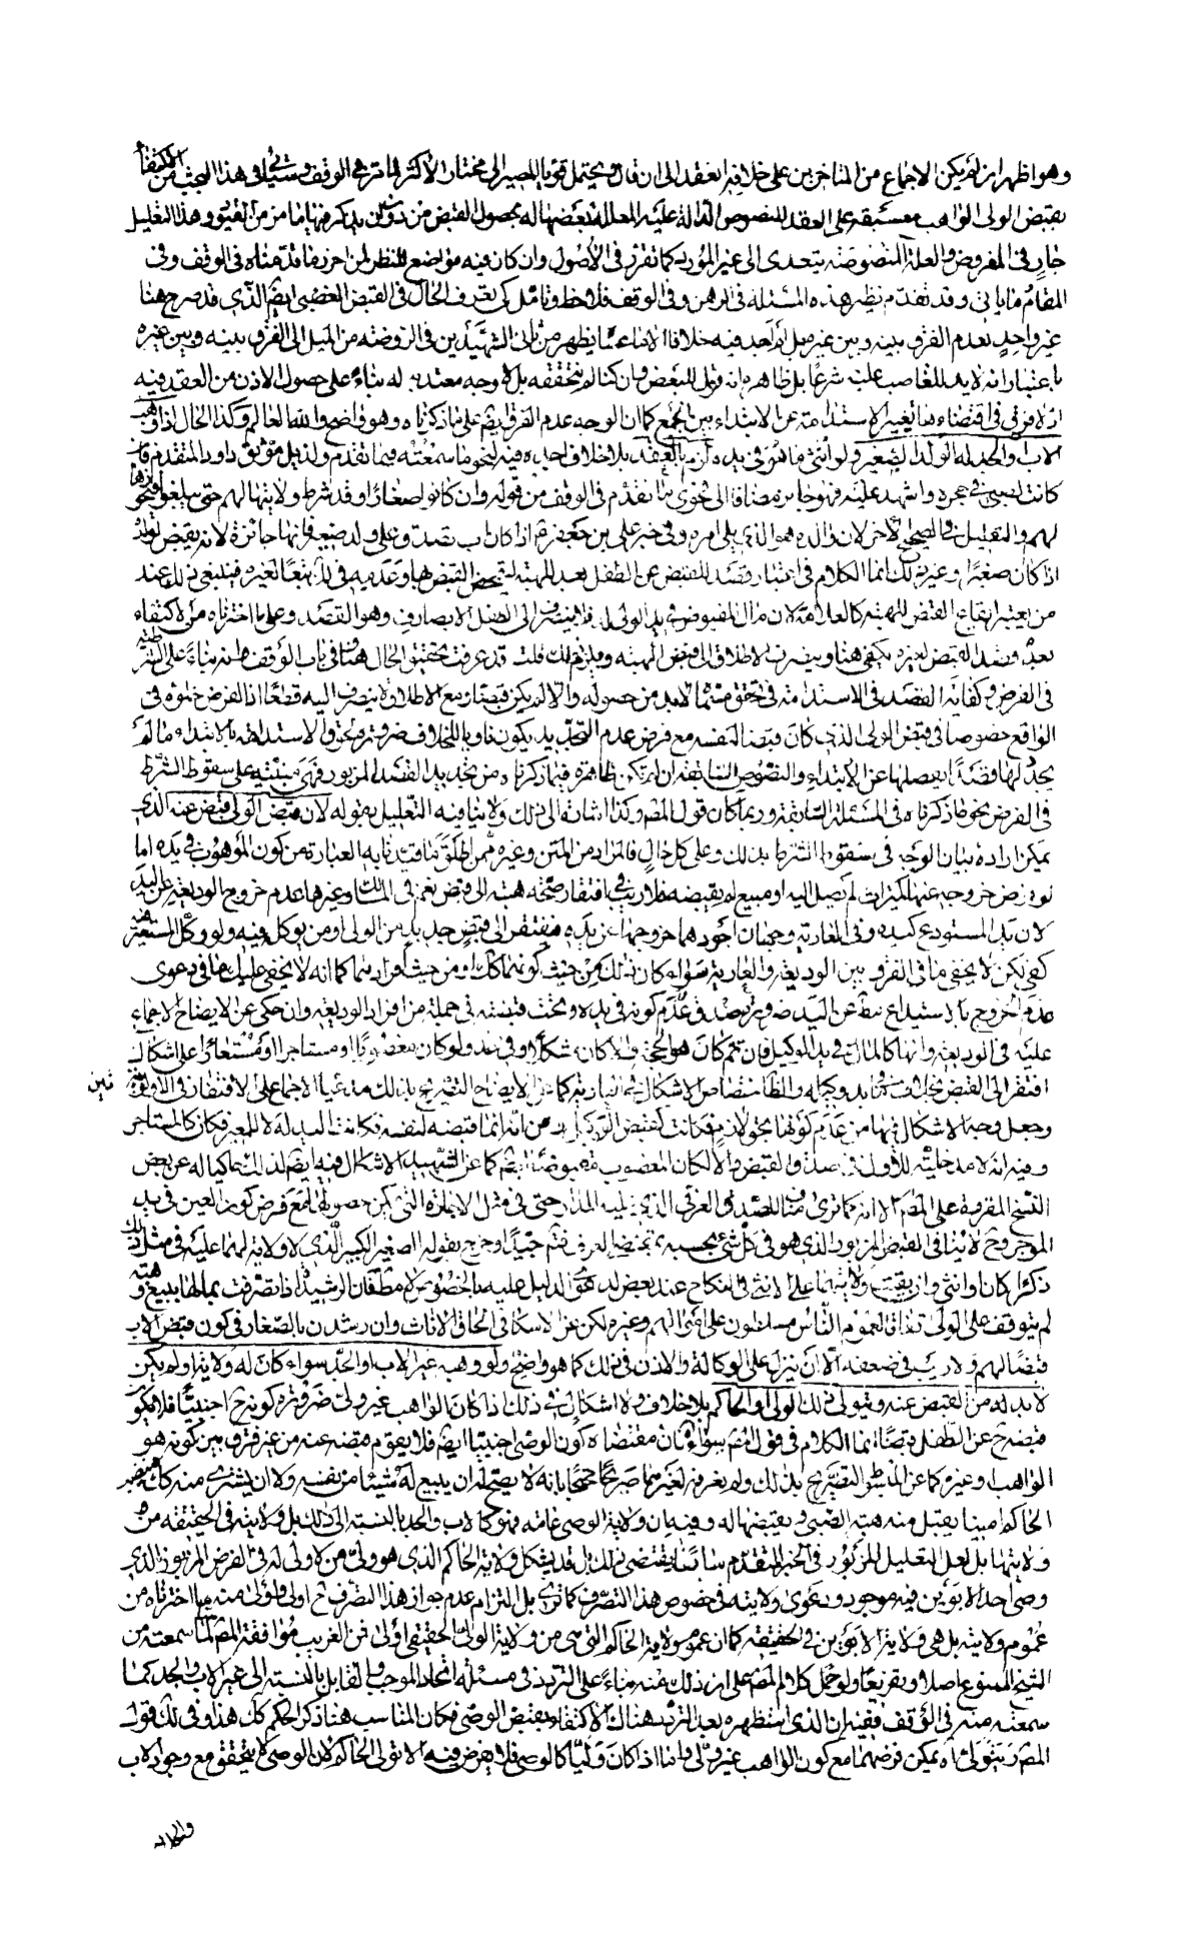 وهو اظهر ان لم يكن الاجماع من المتاخرين على خلافه انعقد الى ان قال ويحتمل قويا المصير الى مختار الاكثر لما مر في الوقف وسياتى فى هذا البحث من الاكتفاء
بقبض الولى الواهب على العقد للنصوص الدالة عليه المعلل بعضها له بحصول القبض من دون هذا التعليل
جار فى المفروض والعلة المنصوصة يتعدى الى غير المورد كما تقرر فى الاصول وان كان فيه مواضع للنظر لمن احرز ما قدمناه فى الوقف وفى
المقام ما ياتى وقد تقدم نظير هذه المسئلة فى الرهن وفى الوقف فلاحظ وتامل كى تعرف الحال فى القبض الغصبى ايضا الذى قد صرح هنا
غير واحد بعدم الفرق بينه وبين غيره بل لم اجد فيه خلافا الا ما عسا يظهر من ثانى الشهيدين فى الروضة من الميل الى الفرق بينه وبين غيره
باعتبار انه لا يد للغاصب عليه شرعا بل ظاهره انه قول للبعض وان كنا لم نتحققه بل لا وجه معتد به له بناء على حصول الاذن من العقد فيه
اذ لا فرق فى اقتضاء هنا تغير الاستدامة عن الابتداء بين الجمع كما ان الوجه عدم الفرق ايضا على ما ذكرناه وهو واضح والله العالم وكذا الحال اذا وهب
الاب والجد له الولد الصغير ولو انثى ما هو فى يده لزم بالعقد بلا خلاف اجده فيه لنحو ما سمعته فيما تقدم ولذيل موثق داود المتقدم فان
كانت لصبى فى حجره واشهد عليه فهو جايز مضافا الى فحوى ما تقدم فى الوقف من قوله وان كانوا صغارا وقد شرط ولايتها لهم حتى يبلغوا فيحوزها
لهم والتعليل فى الصحيح الاخر لان والده هو الذى يلى امره وفى خبر على بن جعفر اذا كان اب تصدق على ولد صغير فانها جائزة لانه يقبض لولده
اذا كان صغيرا وغير ذلك انما الكلام فى اعتبار قصد القبض عن الطفل بعد الهبة ليتمحض القبض لها وعدمه
من يعتبر ايقاع القبض للهبة كالعلامة لان مال المقبوض فى يد الولى له فلا ينصرف الى الطفل الا بصارف وهو القصد وعلى ما اخترناه من الاكتفاء
بعدم قصد القبض لغيره يكفى هنا وينصرف الاطلاق الى قبض الهبة ويلزم ذلك قلت قد عرفت تحقيق الحال هنا فى باب الوقف بناء على الشرطية
فى الفرض وكفاية القصد فى الاستدامة فى تحقق مثلها لابد من حصوله والا لم يكن قبضا مع الاطلاق لا ينصرف اليه قطعا اذا الفرض خلوه فى
الواقع خصوصا فى قبض الولى الذى كان قبضا لنفسه مع فرض عدم التجديد يكون ناويا للخلاف ضرورة الاستدامة بالابتداء ما لم
يجد لها قصدا يفصلها عن الابتداء والنصوص السابقة ان لم تكن ظاهرة فيما ذكرناه ومن تجديد القصد المزبور فهى مبنية على سقوط الشرط
فى الفرض نحو ما ذكرناه فى المسئلة السابقة وربما كان قول المصنف وكذا اشارة الى ذلك ولا ينافيه التعليل بقوله لان قبض الولى قبض عنه الذى
يمكن ارادة بيان الوجه فى سقوط الشرط بذلك وعلى كل حال فالمراد من المتن وغيره ممن اطلق ما قيد به العبارة من كون الموهوب فى يده اما
لو فرض خروجه عنها كميراث لم يصل اليه او مبيع لم يقبضه فلا ريب فى افتقار صحة هبته الى قبض نعم فى المسالك وغيرها عدم خروج الوديعة عن اليد
لان يد المستودع كيده وفى العارية وجهان اجودهما خروجها عن يده فيفتقر الى قبض جديد من الولى او من يوكل فيه ولو وكل المستعير
كفى لكن لا يخفى ما فى الفرق بين الوديعة والعارية سواء كان ذلك من حيث كونهما كذلك او من حيث افرادهما كما انه لا يخفى عليك ما فى دعوى
عدم الخروج بالاستيداع عن اليد ضرورة صدق عدم كونه فى يده وتحت قبضته فى جملة من افراد الوديعة وان حكى عن الايضاح الاجماع
عليه فى الوديعة وانها كالمال فى يد الوكيل فان تم كان هو الحجة والا كان مشكلا وفى عد ولو كان مغصوبا او مستاجرا او مستعارا على اشكال
افتقر الى القبض بخلاف ما فى يد وكيله والظاهر اختصاص الاشكال بالعارية كما عن الايضاح التصريح بذلك مدعيا الاجماع على الافتقار فى الاولين
وجعل وجه الاشكال فيها من عدم كونها بحق لازم فكانت كقبض الوكيل ومن انه انما قبضه لنفسه فكانت اليد له لا للمعير فكان كالمستاجر
وفيه انه لا مدخلية للاول فى صدق القبض والا لكان المغصوب مقبوضا ايضا كما عن الشهيد الاشكال فيه ايضا لذلك حاكيا له عن بعض
النسخ المقروة على المصنف الا انه كما ترى مناف للصدق العرفى الذى عليه المدار حتى فى مثل الاجارة التى يمكن حصولها مع فرض كون العين فى يد
الموجر وح لا ينافى القبض المزبور الذى هو فى كل شئ بحسبه بمقتضى العرف فتم جيدا وخرج بقوله الصغير الكبير الذى لا ولاية لهما عليه فى مثل ذلك
ذكرا كان او انثى وان بقيت ولايتهما على الانثى فى النكاح عند بعض لدعوى الدليل عليه بالخصوص لا مطلقا فان الرشيدة اذا تصرفت بمالها ببيع او هبة
لم يتوقف على الولى اتفاقا لعموم الناس مسلطون على اموالهم وغيره لكن عن الاسكافى الحاق الاناث وان رشدن بالصغار فى كون قبض الاب
قبضا لهم ولا ريب فى ضعفه الا ان ينزل على الوكالة والاذن فى ذلك كما هو واضح ولو وهبه غير الاب والجد سواء كان له ولاية او لم يكن
لابد له من القبض عنه ويتولى ذلك الولى او الحاكم بلا خلاف ولا اشكال فى ذلك اذا كان الواهب غير ولى ضرورة كونه ح اجنبيا فلا يكون
قبضه ح عن الطفل قبضا انما الكلام فى قول المصنف سواء فان مقتضاه كون الوصى اجنبيا ايضا فلا يقوم قبضه عنه من غير فرق بين كونه هو
الواهب او غيره كما عن المبسوط التصريح بذلك ولم نعرفه لغيرهما صريحا محتجا بانه لا يصح له ان يبيع له شيئا من نفسه ولا ان يشترى منه فينصب
الحاكم امينا يقبل منه هبة الصبى ويقبضها له وفيه ان ولاية الوصى عامة فهو كالاب والجد بالنسبة الى ذلك بل ولايته فى الحقيقة من
ولايتها بل لعل التعليل المزبور فى الخبر المتقدم سابقا يقتضى ذلك بل قد يشكل ولاية الحاكم الذى هو ولى من لا ولى له فى الفرض المزبور الذى
وصى احد الابوين فيه موجود ودعوى ولايته فى خصوص هذا التصرف كما ترى بل التزام عدم جواز هذا التصرف ح اولى واولى منه ما اخترناه من
عموم ولايته بل هى ولاية الابوين فى الحقيقة كما ان عموم ولاية الحاكم اقوى من ولاية الولى الحقيقى اولى فمن الغريب موافقة المصنف لما سمعته من
الشيخ الممنوع اصلا وتفريعا ولو حمل كلام المصنف على ان ذلك منه بناء على التردد فى مسئلة اتحاد الموجب والقابل بالنسبة الى غير الاب والجد كما
سمعته منه فى الوقف ففيه ان الذى استظهره بعد التردد هناك الاكتفاء بقبض الوصى فكان المناسب هنا ذكر الحكم كك هذا وفى ذلك قول
المصنف ويتولى اه يمكن فرضهما مع كون الواهب غير ولى واما اذا كان وليا كالوصى فلا يفرض فيه الا تولى الحاكم لان الوصى لا يتحقق مع وجود الاب
والجد